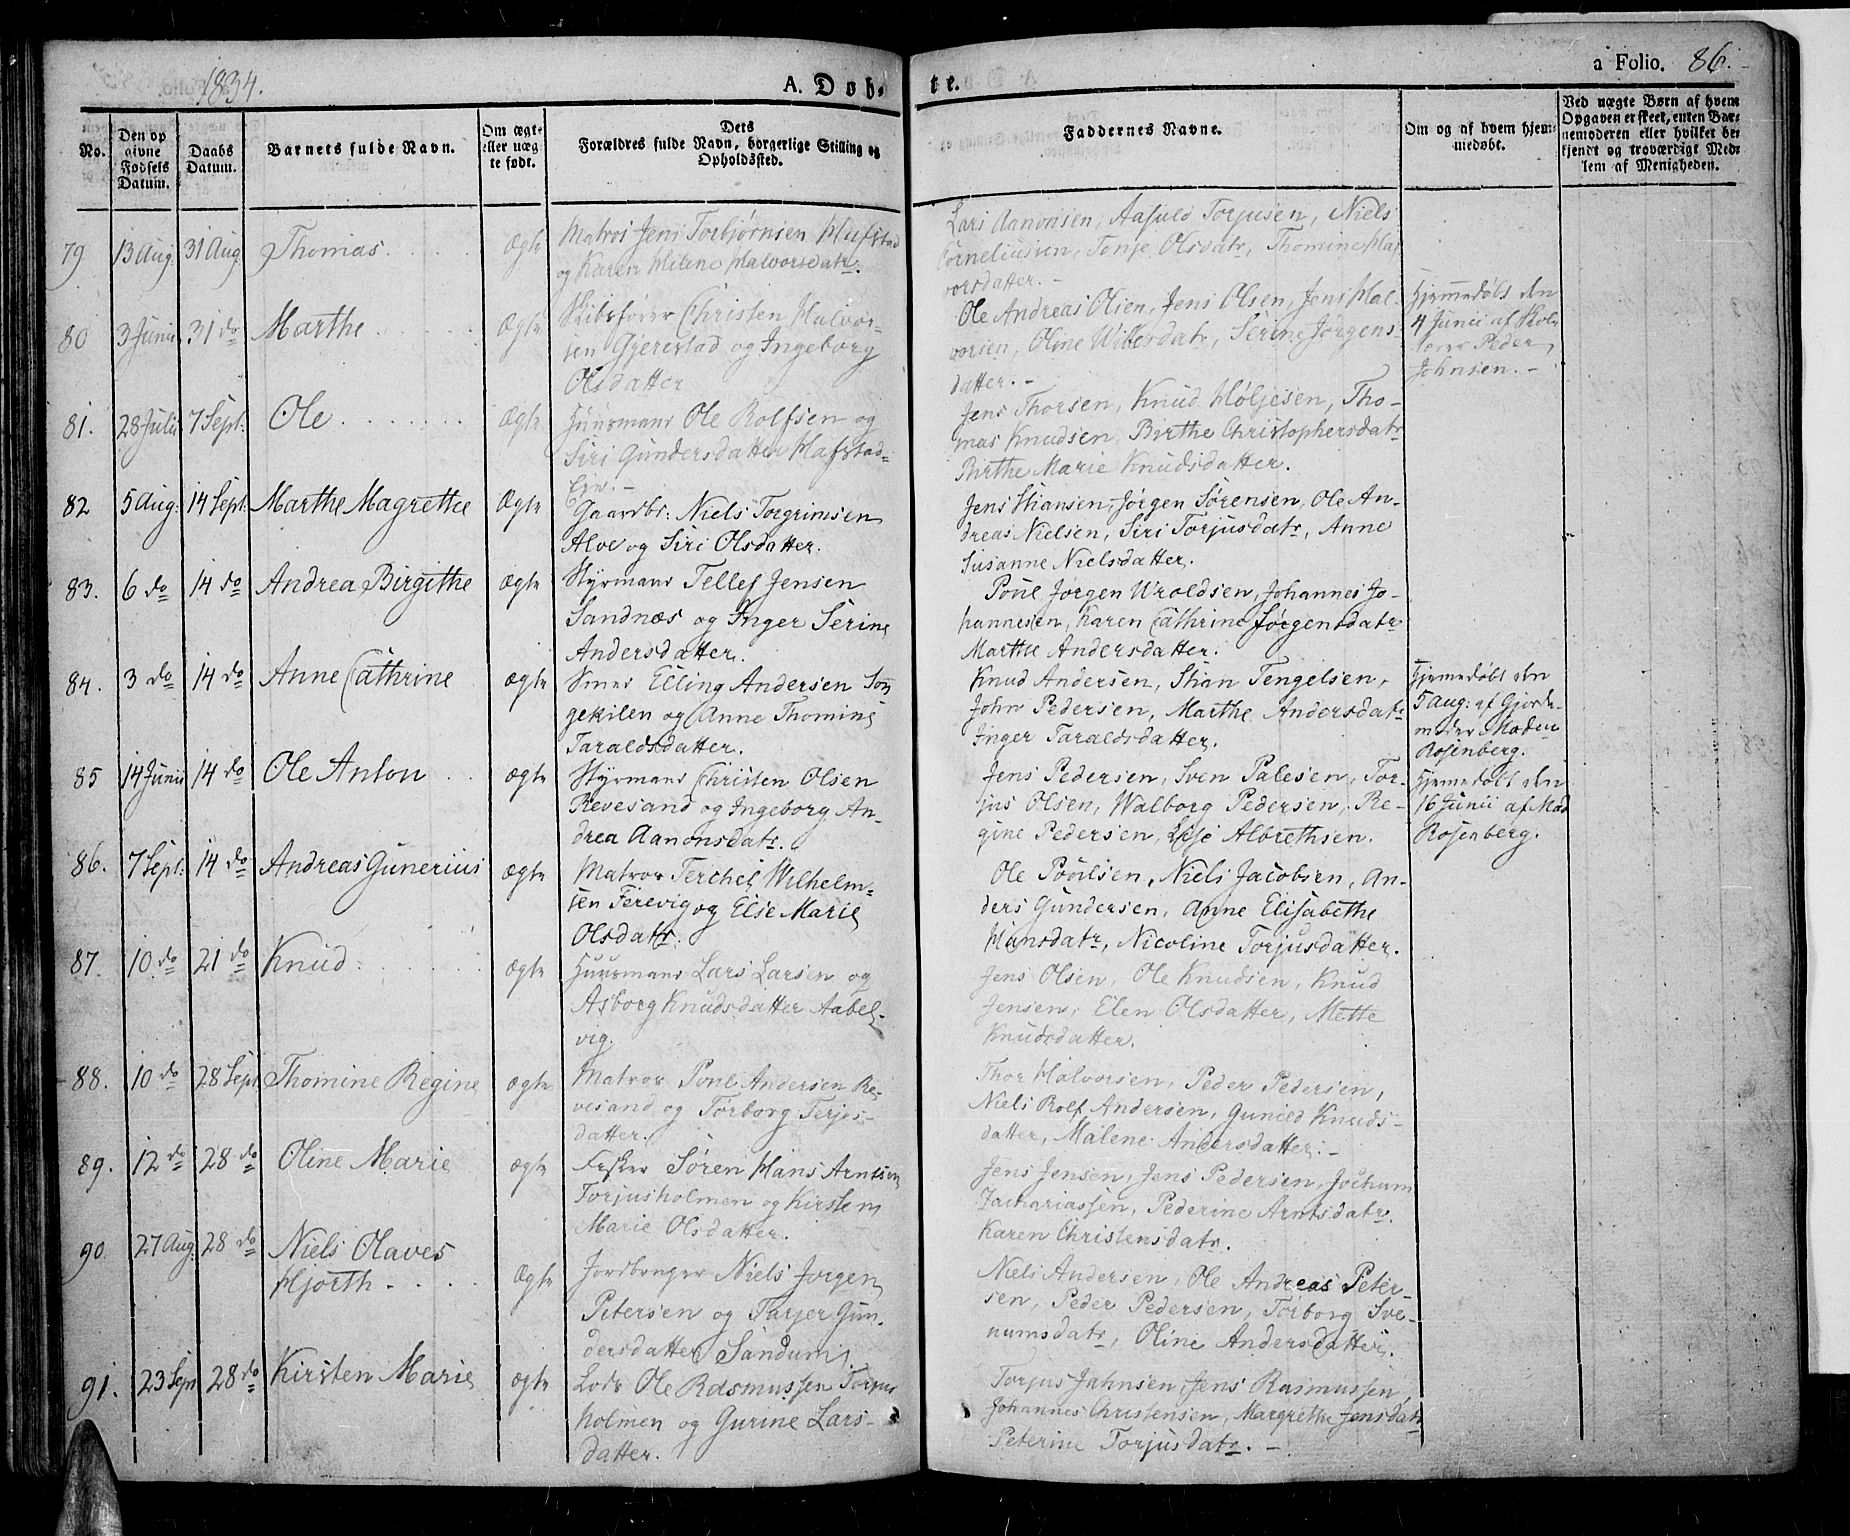 1834.
A. Døb-
te.
a Folio. 86.
No.
Den op
givne
Fødsels
Datum.
Daabs
Datum.
Barnets fulde Navn.
Om ægte
eller uæg
te født.
Dets
Forældres fulde Navn, borgerlige Stilling og
Opholdssted.
Faddernes Navne.
Om og af hvem hjem-
medøbt.
Ved uægte Børn af hvem
Opgaven er skeet, enten Bar-
nemoderen eller hvilket be-
kjendt og troværdigt Med-
lem af Menigheden.
79 13 Aug: 31 Aug Thomas. Ægte
Matros Jens Torbjørnsen Hafstad
og Karen Helene Halvorsdatr.
Lars Aanonsen, Aasuld Torjusen, Niels
Corneliusen, Tonje Olsdatr, Thomine Hal
vorsdatter. -
80 3 Junii 31 do Marthe Ægte
Skibsfører Christen Halvor-
sen Gjerestad og Ingeborg
Olsdatter
Ole Andreas Olsen, Jens Olsen, Jens Hal-
vorsen, Oline Willesdatr, Serine Jørgens-
datter. -
Hjemmedøbt den
4 Junii af Skole
lærer Peder
Johnsen. -
81. 28 Julii 7 Sept: Ole Ægte
Huusmand Ole Rolfsen og
Siri Gundersdatter Hafstad-
Eje. -
Jens Thorsen, Knud Høljesen, Tho-
mas Knudsen, Birthe Christophersdatr
Birthe Marie Knudsdatter.
82 5 Aug: 14 Sept: Marthe Magrethe Ægte
Gaardbr: Niels Torgrimsen
Alve og Siri Olsdatter.
Jens Stiansen, Jørgen Sørensen, Ole An-
dreas Nielsen, Siri Torjusdatr, Anne
Susanne Nielsdatter.
83. 6 do 14 do Andrea Birgithe Ægte
Styrmand Tellef Jensen
Sandnæs og Inger Serine
Andersdatter.
Poul Jørgen Wroldsen, Johannes Jo-
hannesen, Karen Cathrine Jørgensdatr
Marthe Andersdatter.
84. 3 do 14 do Anne Cathrine Ægte
Smed Elling Andersen Son
gekilen og Anne Thomine
Taraldsdatter.
Knud Andersen, Stian Tengelsen,
John Pedersen, Marthe Andersdatr
Inger Taraldsdatter.
Hjemmedøbt den
5 Aug: af Gjorde-
moder Maden
Rosenberg.
85 14 Junii 14 do Ole Anton Ægte
Styrmand Christen Olsen
Revesand og Ingeborg An-
drea Aanonsdatr.
Jens Pedersen, Sven Palesen, Tor-
jus Olsen, Walborg Pedersen, Re-
gine Pedersen, Lise Albrethsen.
Hjemmedøbt den
16 Junii af Mad
Rosenberg.
86. 7 Sept: 14 do Andreas Gunerius Ægte
Matros Terchel Wilhelm-
sen Ferevig og Else Marie
Olsdatr.
Ole Poulsen, Niels Jacobsen, An-
ders Gundersen, Anne Elisabethe
Hansdatr, Nicoline Torjusdatter.
87. 10 do 21 do Knud Ægte
Huusmand Lars Larsen og
Asborg Knudsdatter Aabel-
vig.
Jens Olsen, Ole Knudsen, Knud
Jensen, Elen Olsdatter, Mette
Knudsdatter.
88. 10 do 28 Sept Thomine Regine Ægte
Matros Poul Andersen Re-
vesand og Torborg Terjes-
datter.
Thor Halvorsen, Peder Pedersen,
Niels Rolf Andersen, Gunild Knuds-
datter, Malene Andersdatter. -
89. 12 do 28 do Oline Marie Ægte
Fisker Søren Hans Arntsen
Torjusholmen og Kirsten
Marie Olsdatter.
Jens Jensen, Jens Pedersen, Jochum
Zachariassen, Pederine Arntsdatr.
Karen Christensdatr.
90. 27 Aug: 28 do Niels Olaves
Hjorth - Ægte
Jordbruger Niels Jørgen
Petersen og Tarjer Gun-
dersdatter Sandum
Niels Andersen, Ole Andreas Peter-
sen, Peder Pedersen, Torborg Sve-
numsdatr, Oline Andersdatter.
91. 23 Sept 28 do Kirsten Marie Ægte
Lods Ole Rasmussen Torjus
holmen og Gurine Lars-
datter.
Torjus Jahnsen, Jens Rasmussen,
Johannes Christensen, Margrethe Jensdatr
Peterine Torjusdatr. -